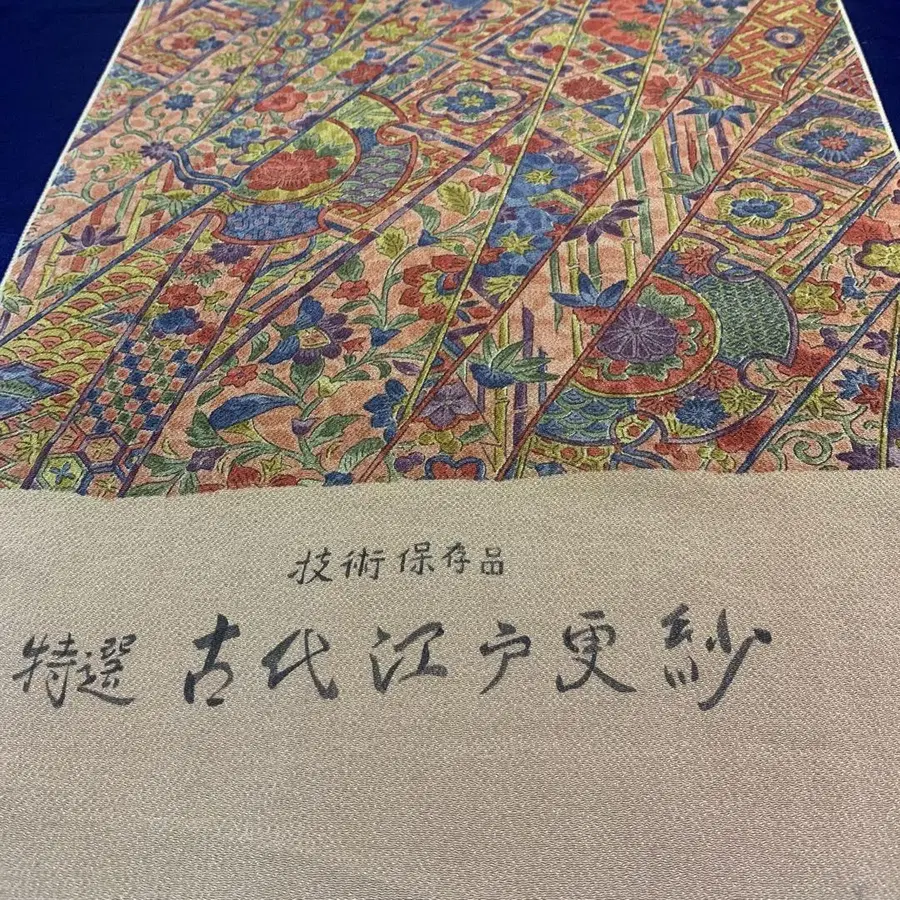 技術保存品
特選 古代江戸更紗